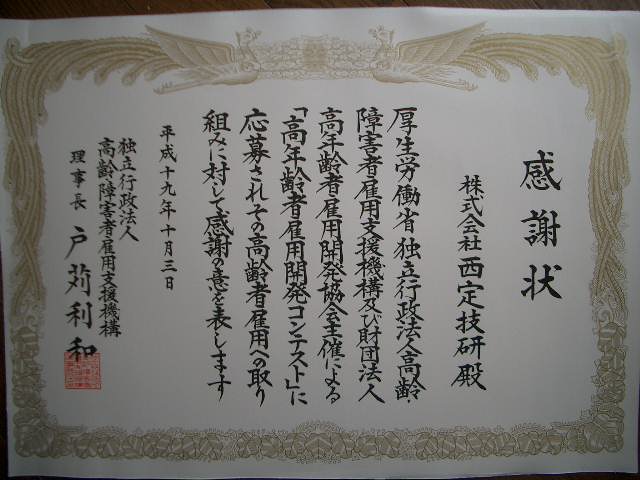 感謝状
株式会社西定技研殿
厚生労働省独立行政法人高齢・
障害者雇用支援機構及び財団法人
高年齢者雇用開発協会主催による
「高年齢者雇用開発コンテスト」に
応募されその高齢者雇用への取り
組みに対して感謝の意を表します
平成十九年十月三日
独立行政法人
高齢・障害者雇用支援機構
理事長 戸苅利和